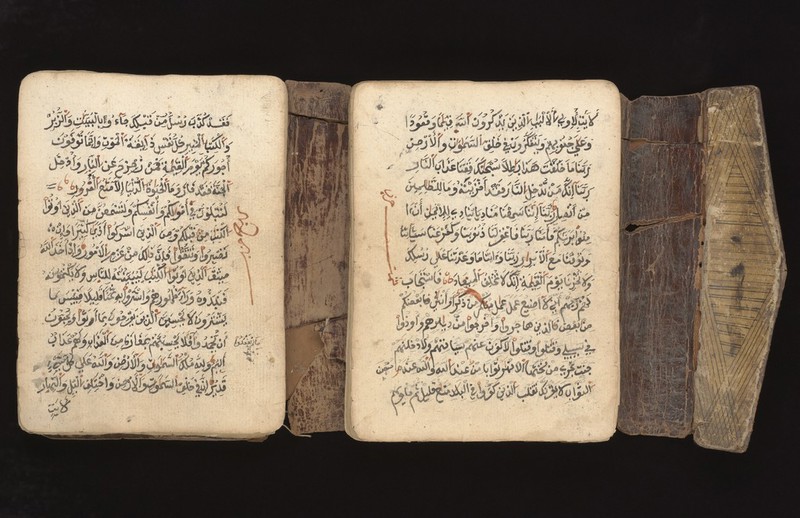 فقد كذب رسل من قبلك جاءو بالبينات والزبر
والكتب المنير كل نفس ذائقة الموت وإنما توفون
أجوركم يوم القيمة فمن زحزح عن النار وأدخل
الجنة فقد فاز وما الحيوة الدنيا إلا متع الغرور
لتبلون في أموالكم وأنفسكم ولتسمعن من الذين أوتوا
الكتب من قبلكم ومن الذين أشركوا أذى كثيرا وإن
تصبروا وتتقوا فإن ذلك من عزم الأمور وإذ أخذ الله
ميثق الذين أوتوا الكتب لتبيننه للناس ولا تكتمونه
فنبذوه وراء ظهورهم واشتروا به ثمنا قليلا فبئس ما
يشترون لا تحسبن الذين يفرحون بما أتوا ويحبون
أن يحمدوا فلا تحسبنهم بمفازة من العذاب ولهم عذاب
أليم ولله ملك السموت والأرض والله على كل شيء
قدير إن في خلق السموت والأرض واختلف الليل والنهار
لأيت
بما لم يفعلوا
لأيت لأولي الألبب الذين يذكرون الله قيما وقعودا
وعلى جنوبهم ويتفكرون في خلق السموت والأرض
ربنا ما خلقت هذا بطلا سبحنك فقنا عذاب النار
ربنا إنك من تدخل النار فقد أخزيته وما للظلمين
من أنصار ربنا إننا سمعنا مناديا ينادي للإيمن أن ا
منوا بربكم فأمنا ربنا فاغفر لنا ذنوبنا وكفر عنا سيئاتنا
وتوفنا مع الأبرار ربنا وأتنا ما وعدتنا على رسلك
ولا تخزنا يوم القيمة إنك لا تخلف الميعاد فاستجاب
لهم ربهم أني لا أضيع عمل عمل منكم من ذكر أو أنثى بعضكم
من بعض فالذين هاجروا وأخرجوا من ديرهم وأوذوا
في سبيلي وقتلوا وقتلوا لأكفرن عنهم سياتهم ولأدخلنهم
جنت تجري من تحتها الأنهر ثوابا من عند الله والله عنده حسن
الثواب لا يغرنك تقلب الذين كفروا في البلد متع قليل ثم مأويهم